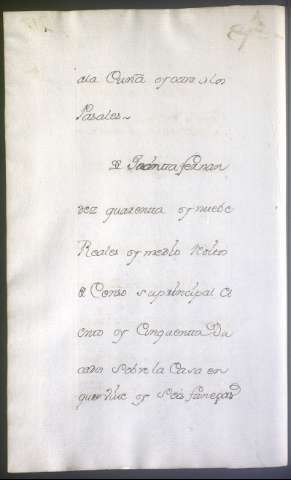 ala Cuña y oare a los
Pasales~
De Jacintta fernan
dez quarenta y nuebe
Reales y medio Vellon
de Censo su prinzipal Ci
ento y Cinquenta Du
cados sobre la Casa en
que vive y seis fanegas